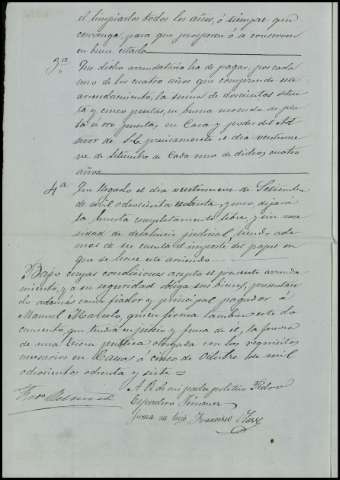 el limpiarlos todos los años, ó siempre que
convenga, para que prosperen ó se conserven
en buen estado
3ª Que dicho arrendatario ha de pagar, por cada
uno de los cuatro años que comprende este
arrendamiento, la suma de doscientas setenta
y cinco pesetas, en buena moneda de plata
ú oro juntas, en Casa y poder del
precisamente el dia veintinueve
de Setiembre de cada uno de dichos cuatro
años
4ª Que llegado el dia veintinueve de Setiembre
de mil ochocientos noventa y uno, dejará
la huerta completamente libre, y sin necesidad
de desahucio judicial, siendo además
de su cuenta el importe del papel en
que se hace este arriendo
Bajo cuyas condiciones acepta el presente arrendamiento,
y á su seguridad obliga sus bienes, presentando
además como fiador y principal pagador á
Manuel quien firma tambien este documento,
que tendrá en juicio y fuera de él, la fuerza
de una Escritura pública otorgada con los requisitos
necesarios en á cinco de Octubre de mil
ochocientos ochenta y siete
A R de mi padre político
firma su hijo Francisco